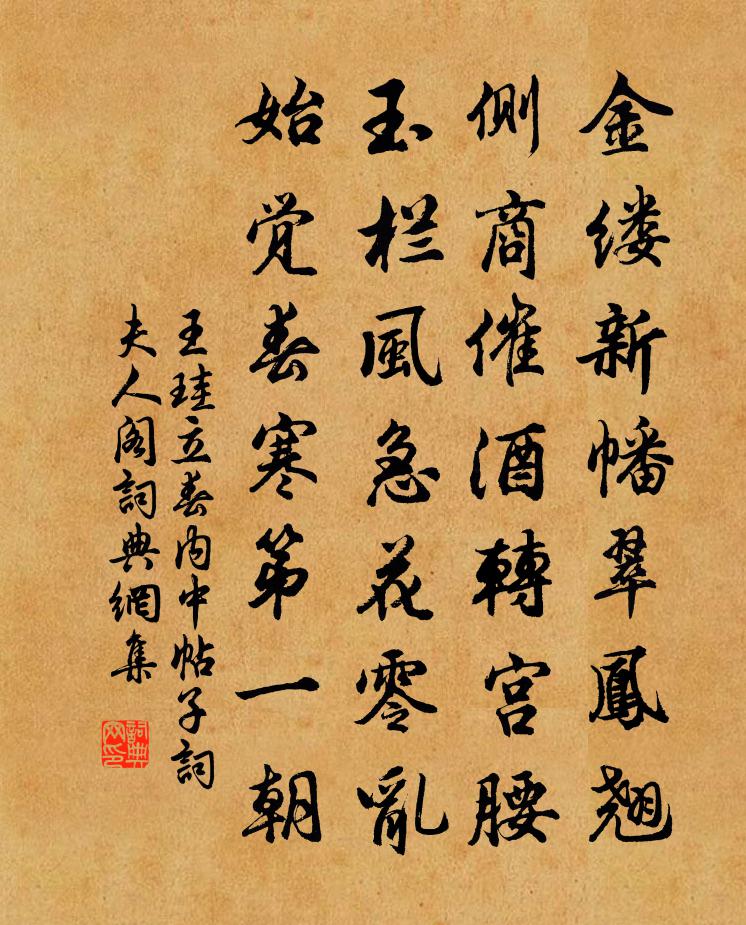 金缕新幡翠鳳翘
側商催酒轉宫腰
玉栏風急花零亂
始觉春寒第一朝
王珪立春内中帖子詞
夫人阁詞典網集
詞典网印